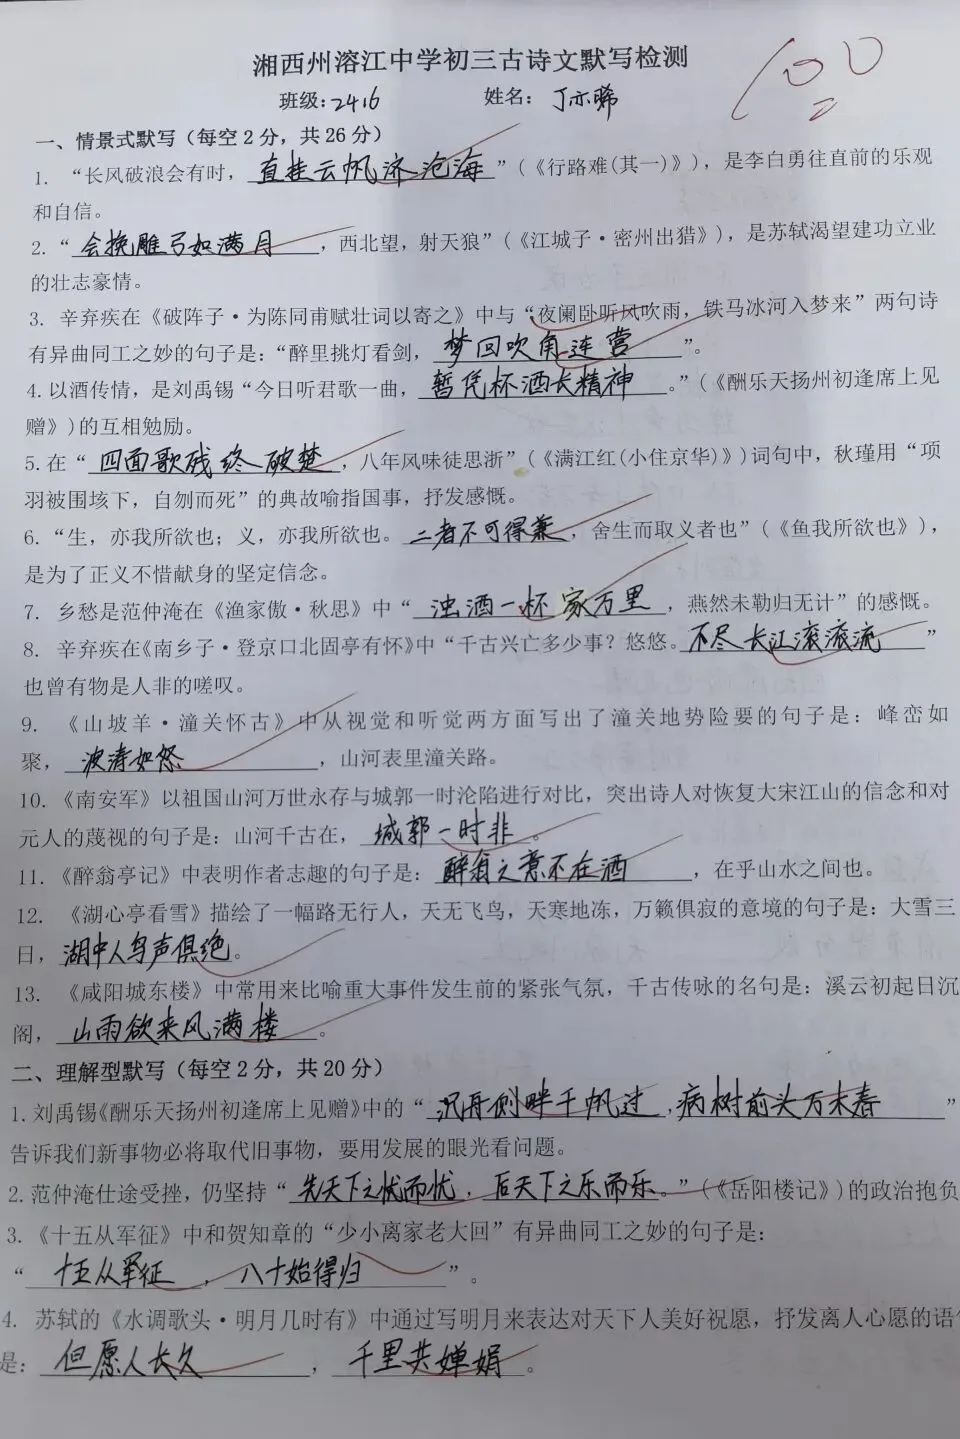 湘西州溶江中学初三古诗文默写检测
100
班级：2416 姓名：丁亦晞
一、情景式默写（每空2分，共26分）
1. “长风破浪会有时，直挂云帆济沧海”(《行路难(其一)》)，是李白勇往直前的乐观
和自信。
2. “会挽雕弓如满月，西北望，射天狼”(《江城子·密州出猎》)，是苏轼渴望建功立业
的壮志豪情。
3. 辛弃疾在《破阵子·为陈同甫赋壮词以寄之》中与“夜阑卧听风吹雨，铁马冰河入梦来”两句诗
有异曲同工之妙的句子是：“醉里挑灯看剑，梦回吹角连营”。
4. 以酒传情，是刘禹锡“今日听君歌一曲，暂凭杯酒长精神。”(《酬乐天扬州初逢席上见
赠》)的互相勉励。
5. 在“四面歌残终破楚，八年风味徒思浙”(《满江红(小住京华)》)词句中，秋瑾用“项
羽被围垓下，自刎而死”的典故喻指国事，抒发感慨。
6. “生，亦我所欲也；义，亦我所欲也。二者不可得兼，舍生而取义者也”(《鱼我所欲也》)，
是为了正义不惜献身的坚定信念。
7. 乡愁是范仲淹在《渔家傲·秋思》中“浊酒一杯家万里，燕然未勒归无计”的感慨。
8. 辛弃疾在《南乡子·登京口北固亭有怀》中“千古兴亡多少事？悠悠。不尽长江滚滚流”
也曾有物是人非的嗟叹。
9. 《山坡羊·潼关怀古》中从视觉和听觉两方面写出了潼关地势险要的句子是：峰峦如
聚，波涛如怒，山河表里潼关路。
10. 《南安军》以祖国山河万世永存与城郭一时沦陷进行对比，突出诗人对恢复大宋江山的信念和对
元人的蔑视的句子是：山河千古在，城郭一时非。
11. 《醉翁亭记》中表明作者志趣的句子是：醉翁之意不在酒，在乎山水之间也。
12. 《湖心亭看雪》描绘了一幅路无行人，天无飞鸟，天寒地冻，万籁俱寂的意境的句子是：大雪三
日，湖中人鸟声俱绝。
13. 《咸阳城东楼》中常用来比喻重大事件发生前的紧张气氛，千古传咏的名句是：溪云初起日沉
阁，山雨欲来风满楼。
二、理解型默写（每空2分，共20分）
1. 刘禹锡《酬乐天扬州初逢席上见赠》中的“沉舟侧畔千帆过，病树前头万木春”
告诉我们新事物必将取代旧事物，要用发展的眼光看问题。
2. 范仲淹仕途受挫，仍坚持“先天下之忧而忧，后天下之乐而乐。”(《岳阳楼记》)的政治抱负
3. 《十五从军征》中和贺知章的“少小离家老大回”有异曲同工之妙的句子是：
“十五从军征，八十始得归”。
4. 苏轼的《水调歌头·明月几时有》中通过写明月来表达对天下人美好祝愿，抒发离人心愿的语句
是：但愿人长久，千里共婵娟。